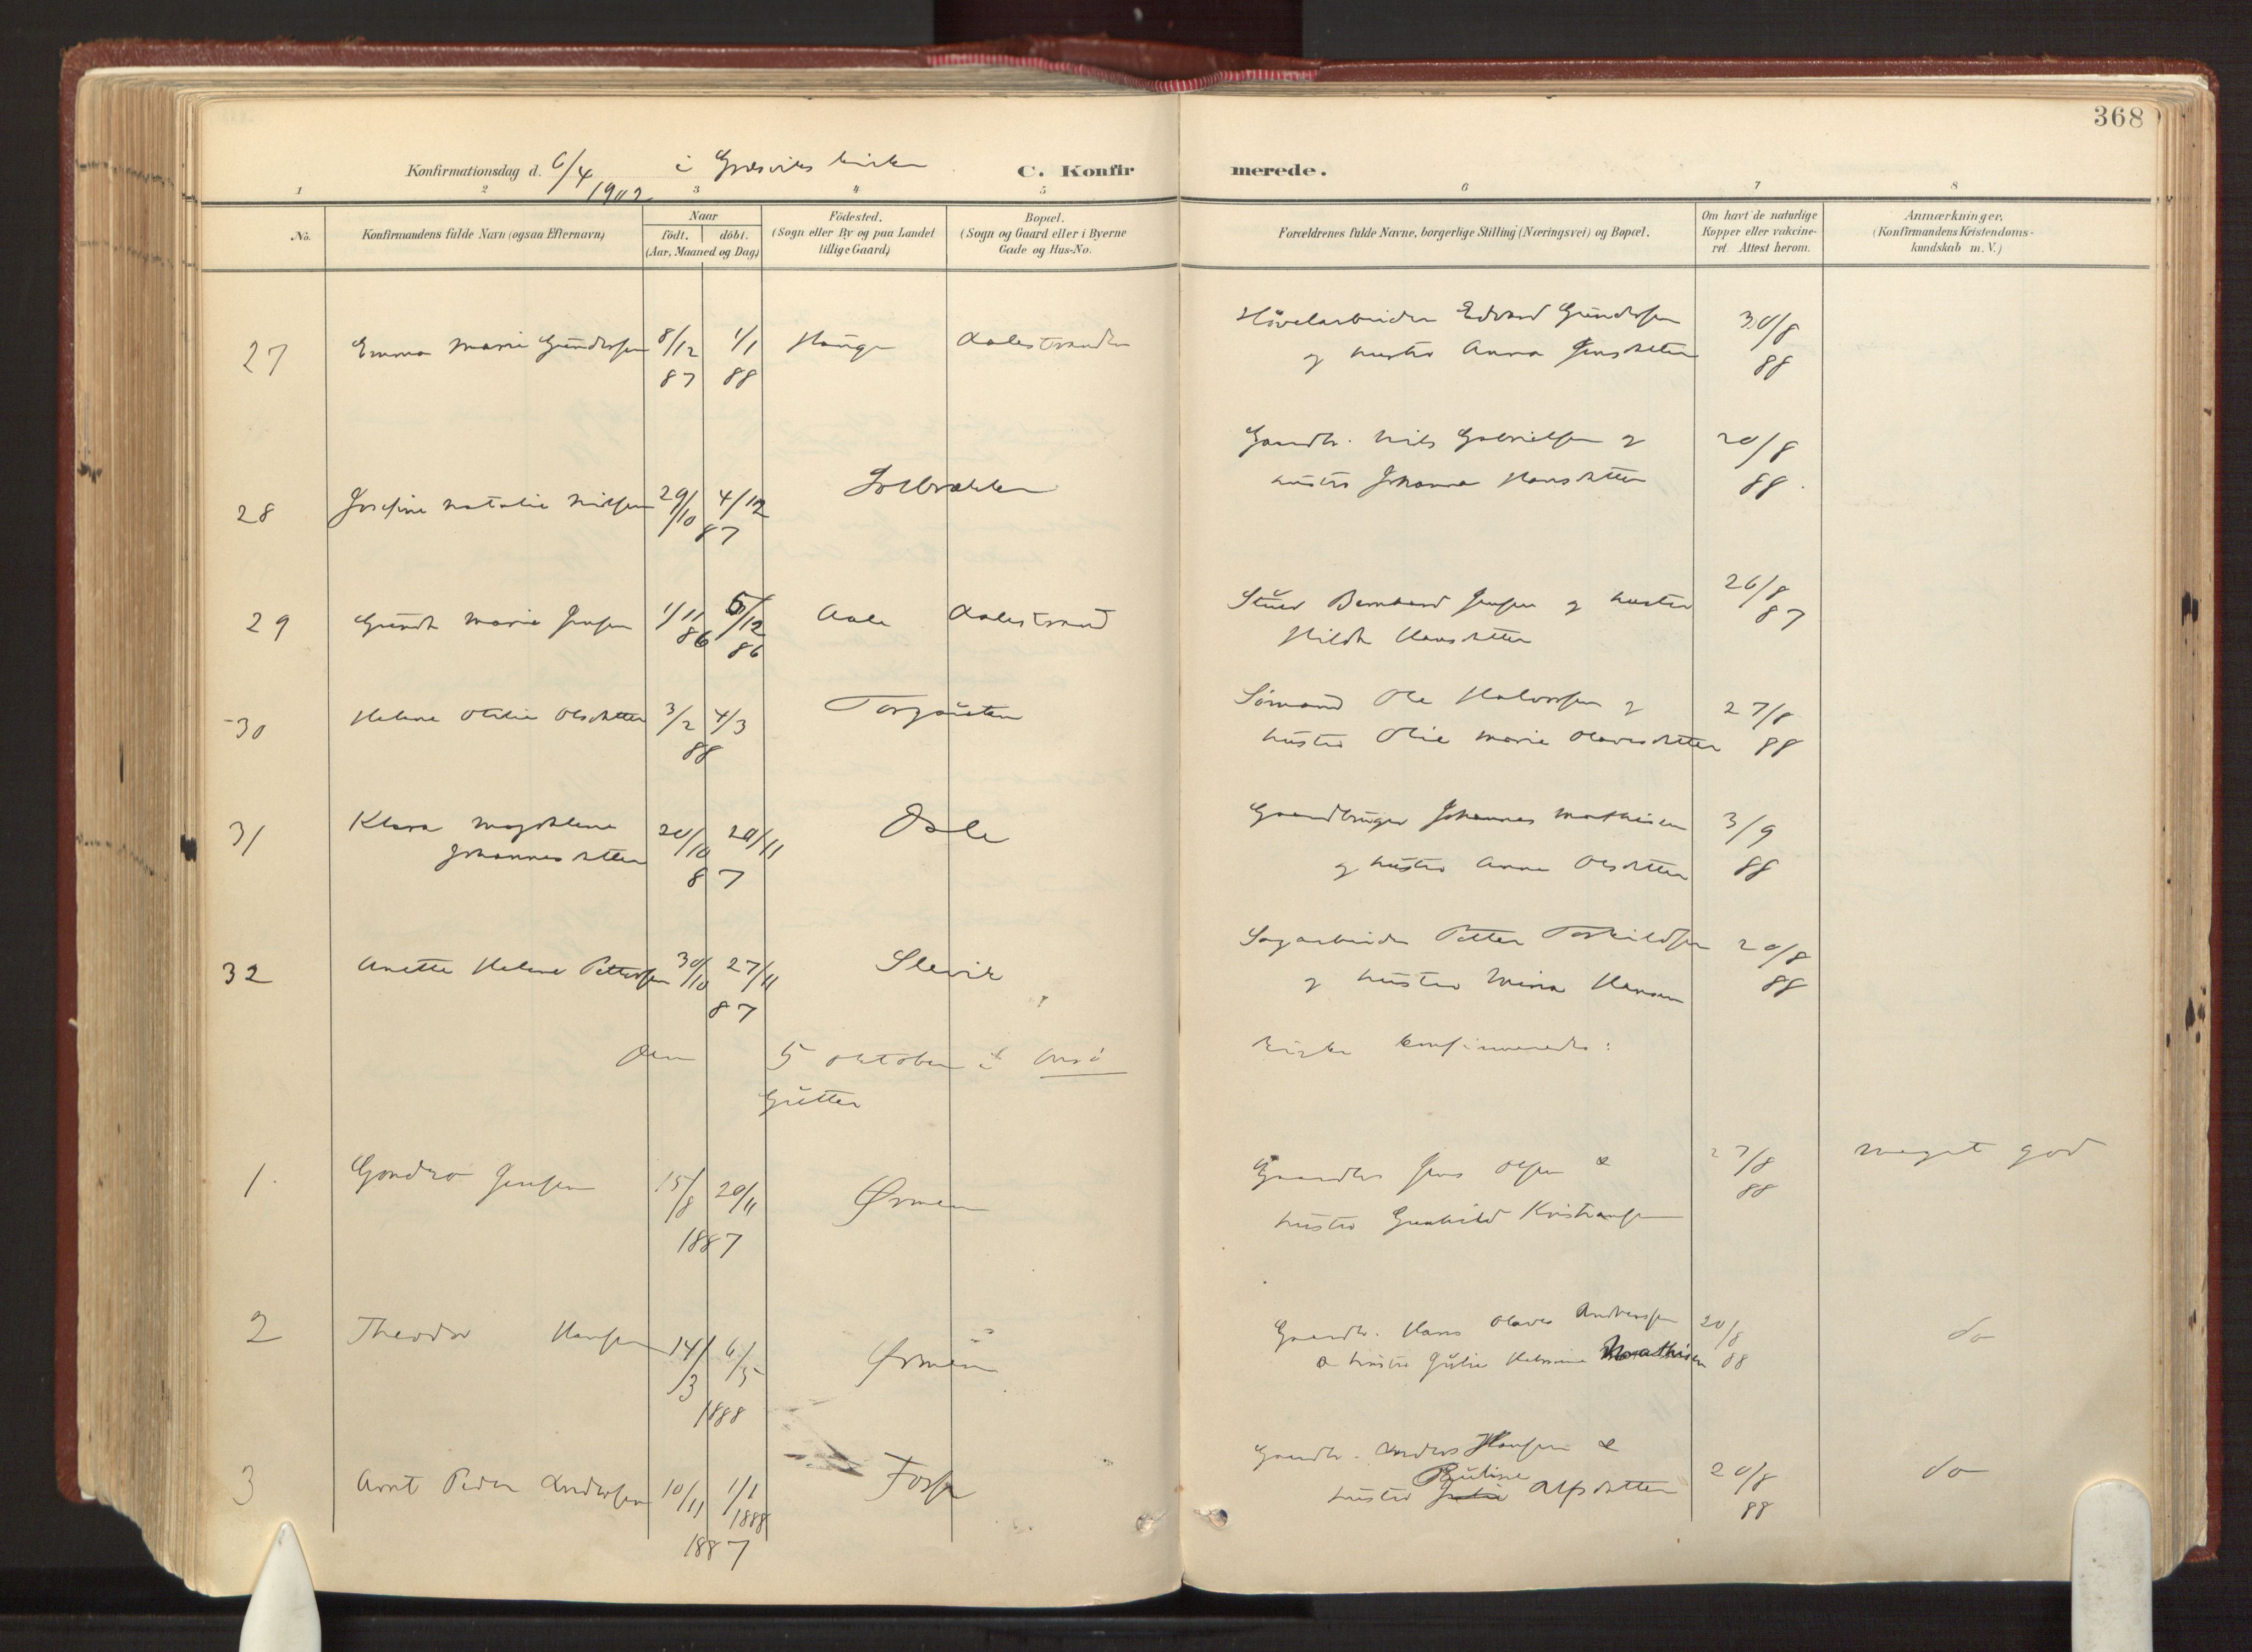 368
Konfirmationsdag d. 6/4 1902 i Græsviks kirke C. Konfirmerede.
1 2 3 4 5 6 7 8
No.
Konfirmandens fulde Navn (ogsaa Efternavn)
Naar
født. døbt.
(Aar, Maaned og Dag)
Födested.
(Sogn eller By og paa Landet
tillige Gaard)
Bopæl.
(Sogn og Gaard eller i Byerne
Gade og Hus-No.
Forældrenes fulde Navne, borgerlige Stilling (Næringsvei) og Bopæl.
Om havt de naturlige
Kopper eller vakcine-
ret. Attest herom.
Anmærkninger.
(Konfirmandens Kristendoms-
kundskab m. V.)
27 Emma Marie Gundersen 8/12 87 1/1 88 Hauge Aalestranden
Høvelarbeider Edvard Gundersen 30/8
og hustru Anna Jensdatter 88
28 Josefine Natalie Nilsen 29/10 4/12 87 Solbrækken
Gaardbr. Nils Gabrielsen og 20/8
hustru Johanna Hansdatter 88.
29 Gunda Marie Jensen 1/11 86 5/12 86 Aale Aalestrand
Stuer Bernhard Jensen og hustru 26/8
Hilda Hansdatter 87
30 Helene Otilie Olsdatter 3/2 4/3 88 Torgauten
Sømand Ole Halvorsen og 27/8
hustru Olie Marie Olavesdatter 88
31 Klara Magdalene
Johannesdatter 20/10 20/11 87 Dale
Gaardbruger Johannes Mathisen 3/9
og hustru Anne Olsdatter 88
32 Anette Helene Pettersen 30/10 27/11 87 Slevik
Sagarbeider Petter Torkildsen 20/8
og hustru Mina Hansen 88
Den 5 oktober i Onsø kirke konfirmerede:
Gutter
1. Jensen 15/8 20/11 1887 Ørmen
Gaardbr. Jens Olsen & 27/8 meget god
hustru Gunhild Kristiansen 88
2 Theodor Hansen 14/3 6/5 1888 Ørmen
Gaardbr. Hans Olaves Andreassen 20/8 do
& hustru Julie Helmine Mathisen 88
3 Arnt Peder Andersen 10/11 1887 1/1 1888 Fosse
Gaardbr. Anders Hansen &
Pauline
hustru Julie Alfsdatter 20/8 88 do